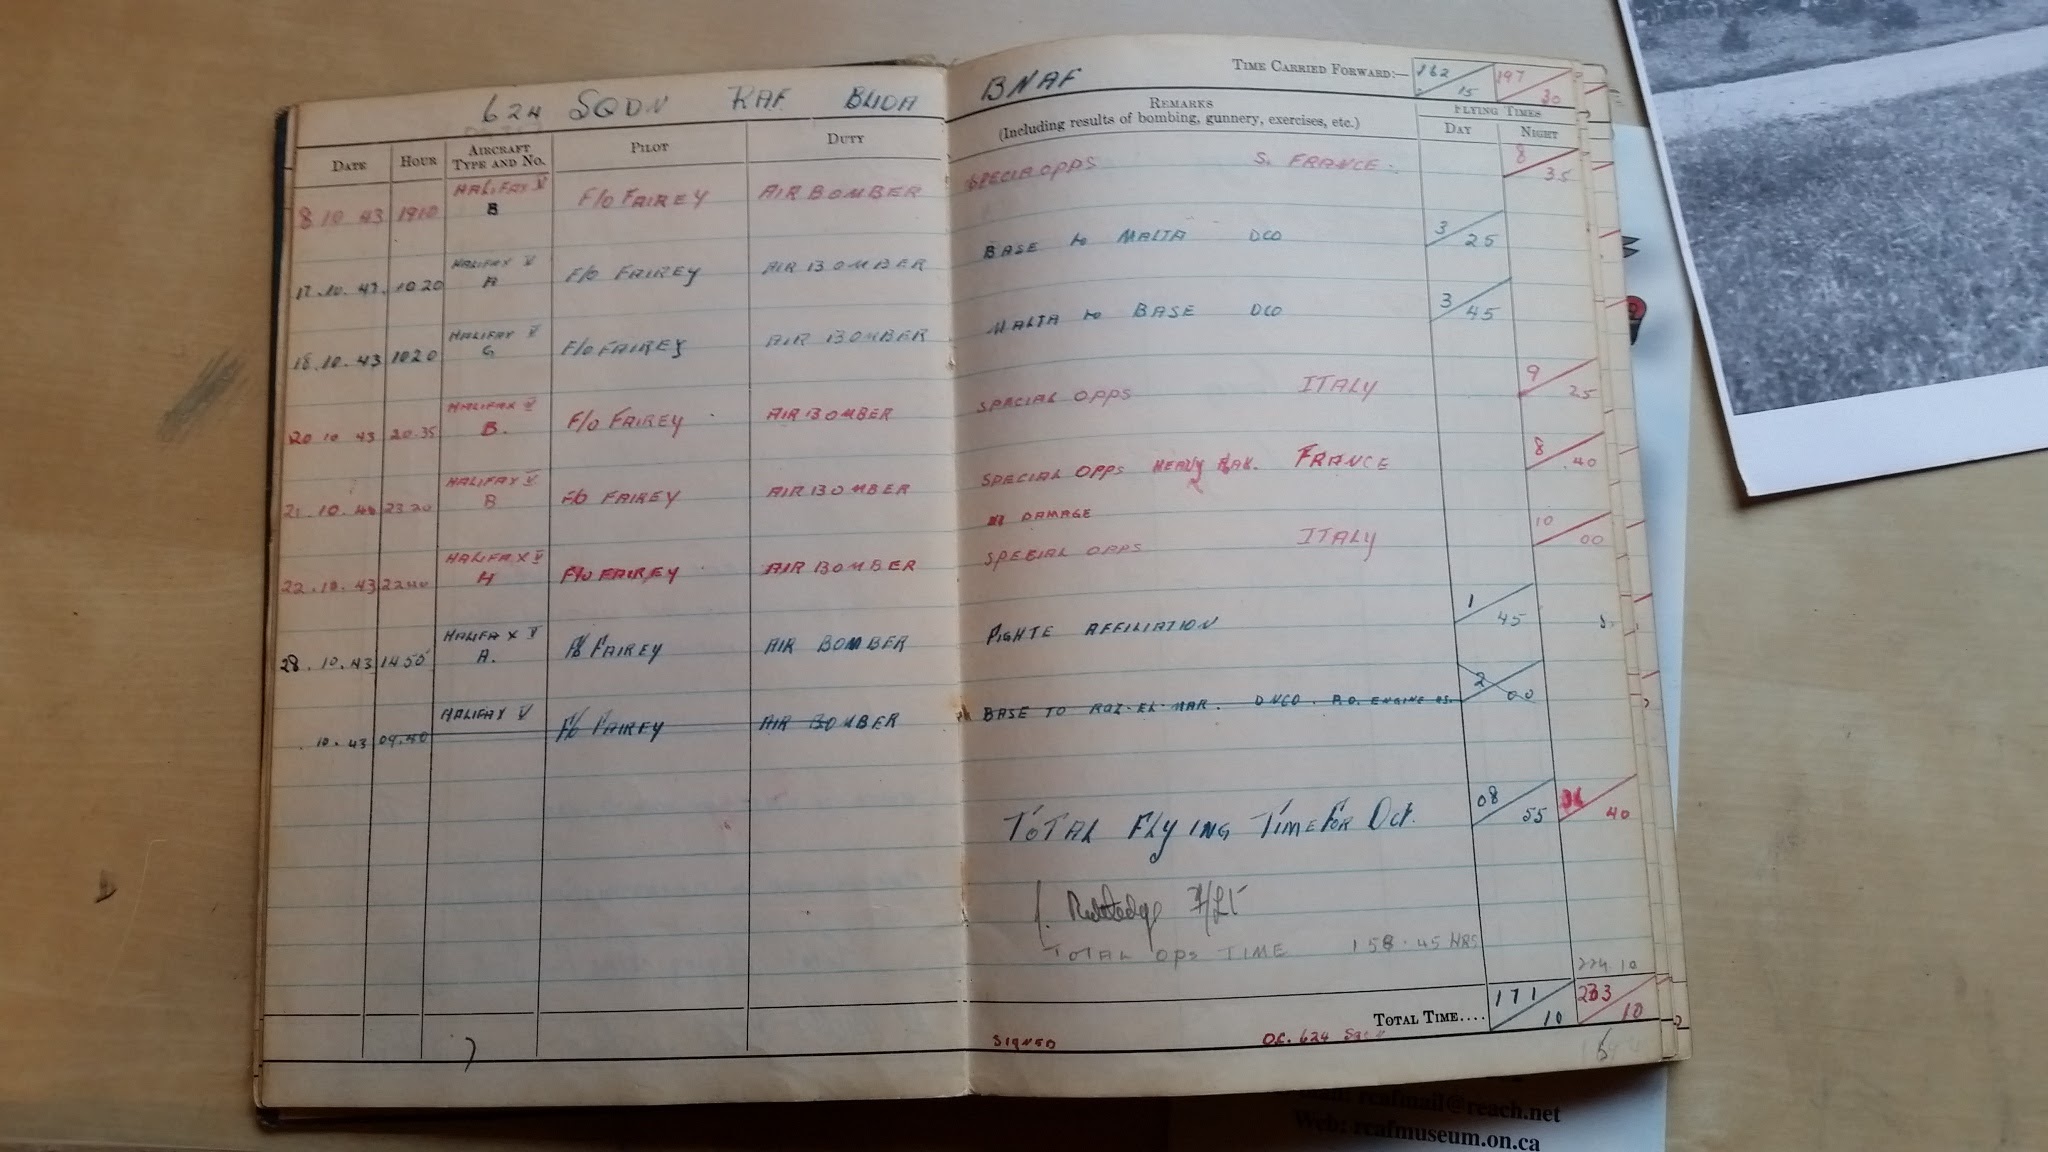 624 SQDN RAF BLIDA BNAF
TIME CARRIED FORWARD:— 162 15 197 30
DATE HOUR AIRCRAFT TYPE AND NO. PILOT DUTY
REMARKS
(Including results of bombing, gunnery, exercises, etc.)
FLYING TIMES
DAY NIGHT
8 10 43 1910 HALIFAX V B F/O FAIREY AIR BOMBER SPECIAL OPPS S. FRANCE 8 35
17.10.43. 1020 HALIFAX V A F/O FAIREY AIR BOMBER BASE to MALTA DCO 3 25
18.10.43 1020 HALIFAX V G F/O FAIREY AIR BOMBER MALTA to BASE DCO 3 45
20 10 43 20.35 HALIFAX V B. F/O FAIREY AIR BOMBER SPECIAL OPPS ITALY 9 25
21.10.43 23 20 HALIFAX V B F/O FAIREY AIR BOMBER SPECIAL OPPS HEAVY FLAK. FRANCE 8 .40
DAMAGE
22.10.43 HALIFAX V H F/O FAIREY AIR BOMBER SPECIAL OPPS ITALY 10 00
28.10.43 1455 HALIFAX V A. F/O FAIREY AIR BOMBER FIGHTE AFFILIATION 1 45
.10.43 09.40 HALIFAX V F/O FAIREY AIR BOMBER BASE TO RAZ-EL-MAR. DNCO. P.O. ENGINE 2 00
TOTAL FLYING TIME FOR Oct. 08 55 36 40
Rutledge F/LT
TOTAL OPS TIME 158.45 HRS
224.10
TOTAL TIME.... 171 10 233 10
SIGNED O.C. 624 Sqdn
rcafmail@reach.net
Web: rcafmuseum.on.ca